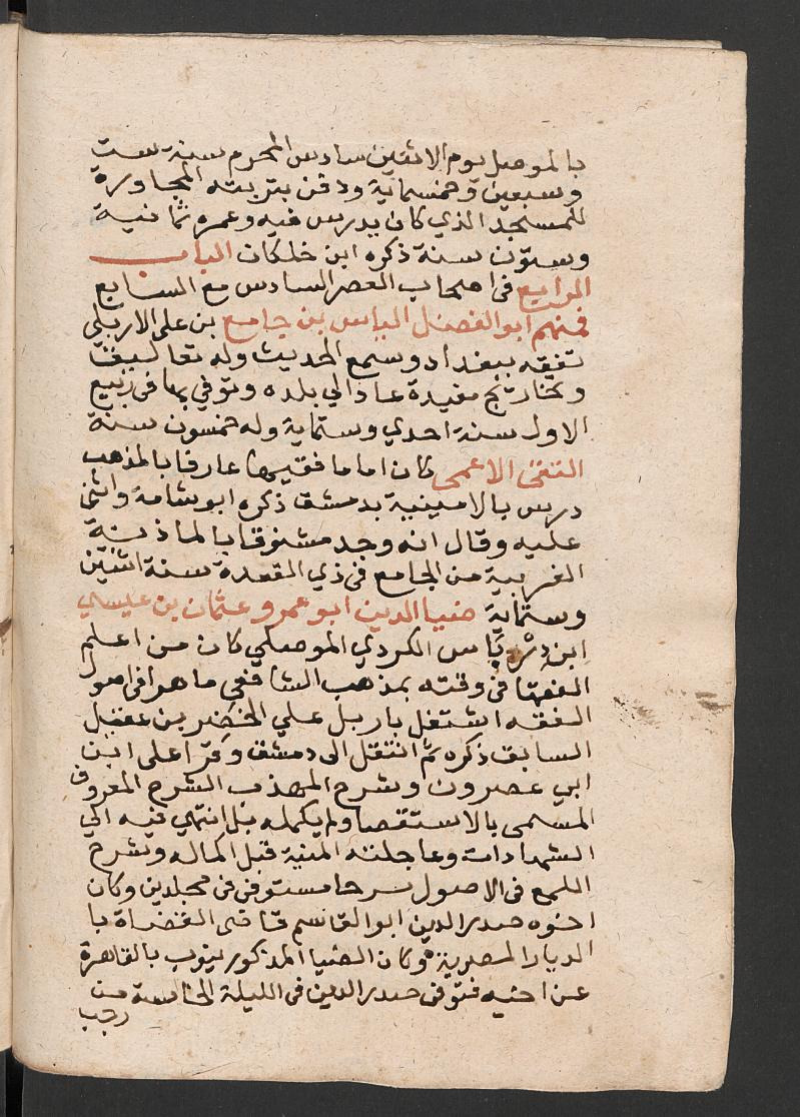 بالموصل يوم الاثنين سادس المحرم سنة ست
وسبعين وخمسماية ودفن بتربته المجاورة
للمسجد الذي كان يدرس فيه وعمره ثمانية
وستون سنة ذكره ابن خلكان الباب
الرابع في اصحاب العصر السادس مع السابع
فمنهم ابو الفضل الياس بن جامع بن علي الاربلي
تفقه ببغداد وسمع الحديث وله تعاليف
وتخاريج مفيدة عاد الي بلده وتوفي بها في ربيع
الاول سنة احدي وستماية وله خمسون سنة
التقي الاعمى كان اماما فقيها عارفا بالمذهب
درس بالامينية بدمشق ذكره ابو شامة واثنى
عليه وقال انه وجد مشنوقا بالماذنة
الغربية من الجامع في ذي القعدة سنة اثنين
وستماية ضيا الدين ابو عمرو عثمان بن عيسي
ابن درباس الكردي الموصلي كان من اعلم
الفقها في وقته بمذهب الشافعي ماهرا في اصول
الفقه اشتغل باربل علي الخضر بن عقيل
السابق ذكره ثم انتقل الى دمشق وقرا على ابن
ابي عصرون وشرح المهذب الشرح المعروف
المسمى بالاستقصا ولم يكمله بل انتهي فيه الي
الشهادات وعاجلته المنية قبل اكماله وشرح
اللمع في الاصول شرحا مستوفي في مجلدين وكان
اخوه صدر الدين ابو القاسم قاضى القضاة با
الديار المصرية وكان الضيا المذكور ينوب بالقاهرة
عن اخيه فتوفى صدر الدين في الليلة الخامسة من
رجب